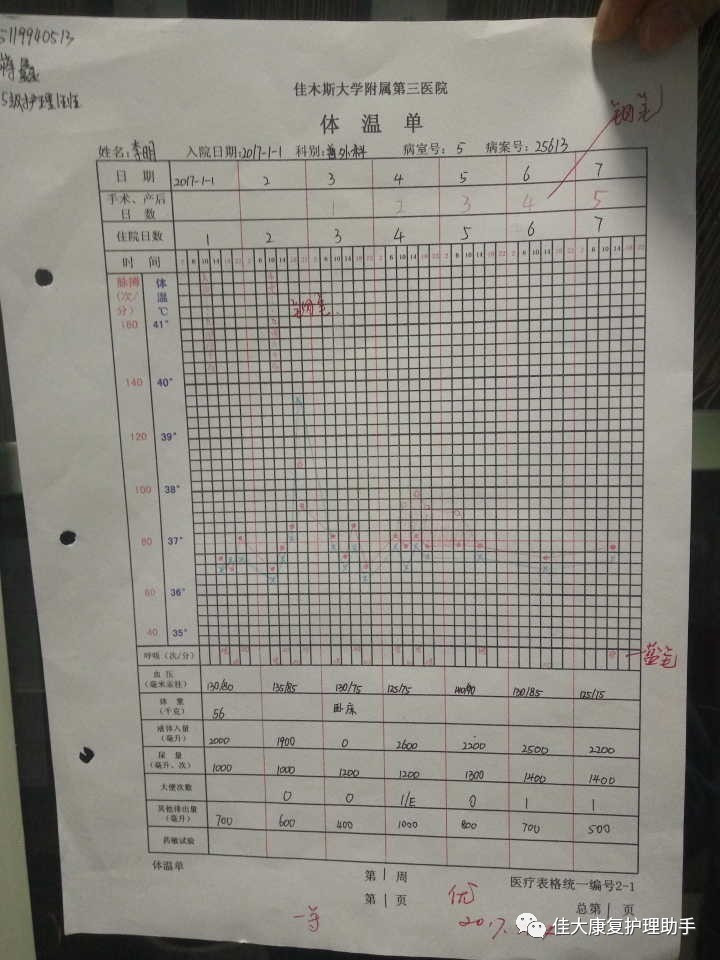 5119940513
蒋蠡
5级护理1班
佳木斯大学附属第三医院
体温单
钢笔
姓名:李明 入院日期:2017-1-1 科别:普外科 病室号:5 病案号:25613
日期 2017-1-1 2 3 4 5 6 7
手术、产后日数 1 2 3 4 5
住院日数 1 2 3 4 5 6 7
时间 2 6 10 14 18 22 2 6 10 14 18 22 2 6 10 14 18 22 2 6 10 14 18 22 2 6 10 14 18 22 2 6 10 14 18 22 2 6 10 14 18 22
脉搏(次/分) 体温℃
钢笔
160 41°
140 40°
120 39°
100 38°
80 37°
60 36°
40 35°
呼吸(次/分)
蓝笔
血压(毫米汞柱) 130/80 135/85 130/75 125/75 140/90 130/85 125/75
体重(千克) 56 卧床
液体入量(毫升) 2000 1900 0 2600 2200 2500 2200
尿量(毫升、次) 1000 1000 1200 1200 1300 1400 1400
大便次数 0 0 1/E 0 1 1
其他排出量(毫升) 700 600 400 1000 800 700 500
药敏试验
体温单 第1周 医疗表格统一编号2-1
第1页 总第1页
一等 优
2017.
佳大康复护理助手